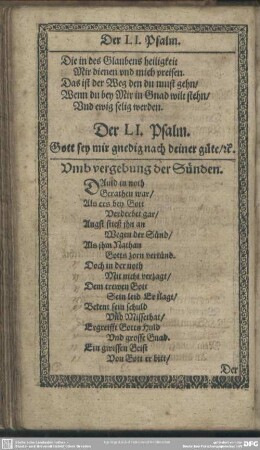 Der LI. Psalm.
Die in des Glaubens heiligkeit
Mir dienen vnd mich preisen.
Das ist der Weg den du must gehn/
Wenn du bey Mir in Gnad wilt stehn/
Vnd ewig selig werden.
Der LI. Psalm.
Gott sey mir gnedig nach deiner güte/ꝛc.
Vmb vergebung der Sünden.
DAuid in noth
Gerathen war/
Als ers bey Gott
Verderbt gar/
Angst stieß jhn an
Wegen der Sünd/
Als jhm Nathan
Gotts zorn verkünd.
Doch in der noth
Mit nicht verzagt/
Dem trewen Gott
Sein leid Er klagt/
Betem sein schuld
Vnd Missethat/
Ergreifft Gotts Huld
Vnd grosse Gnad.
Ein gwissen Geist
Von Gott er bitt/
Der